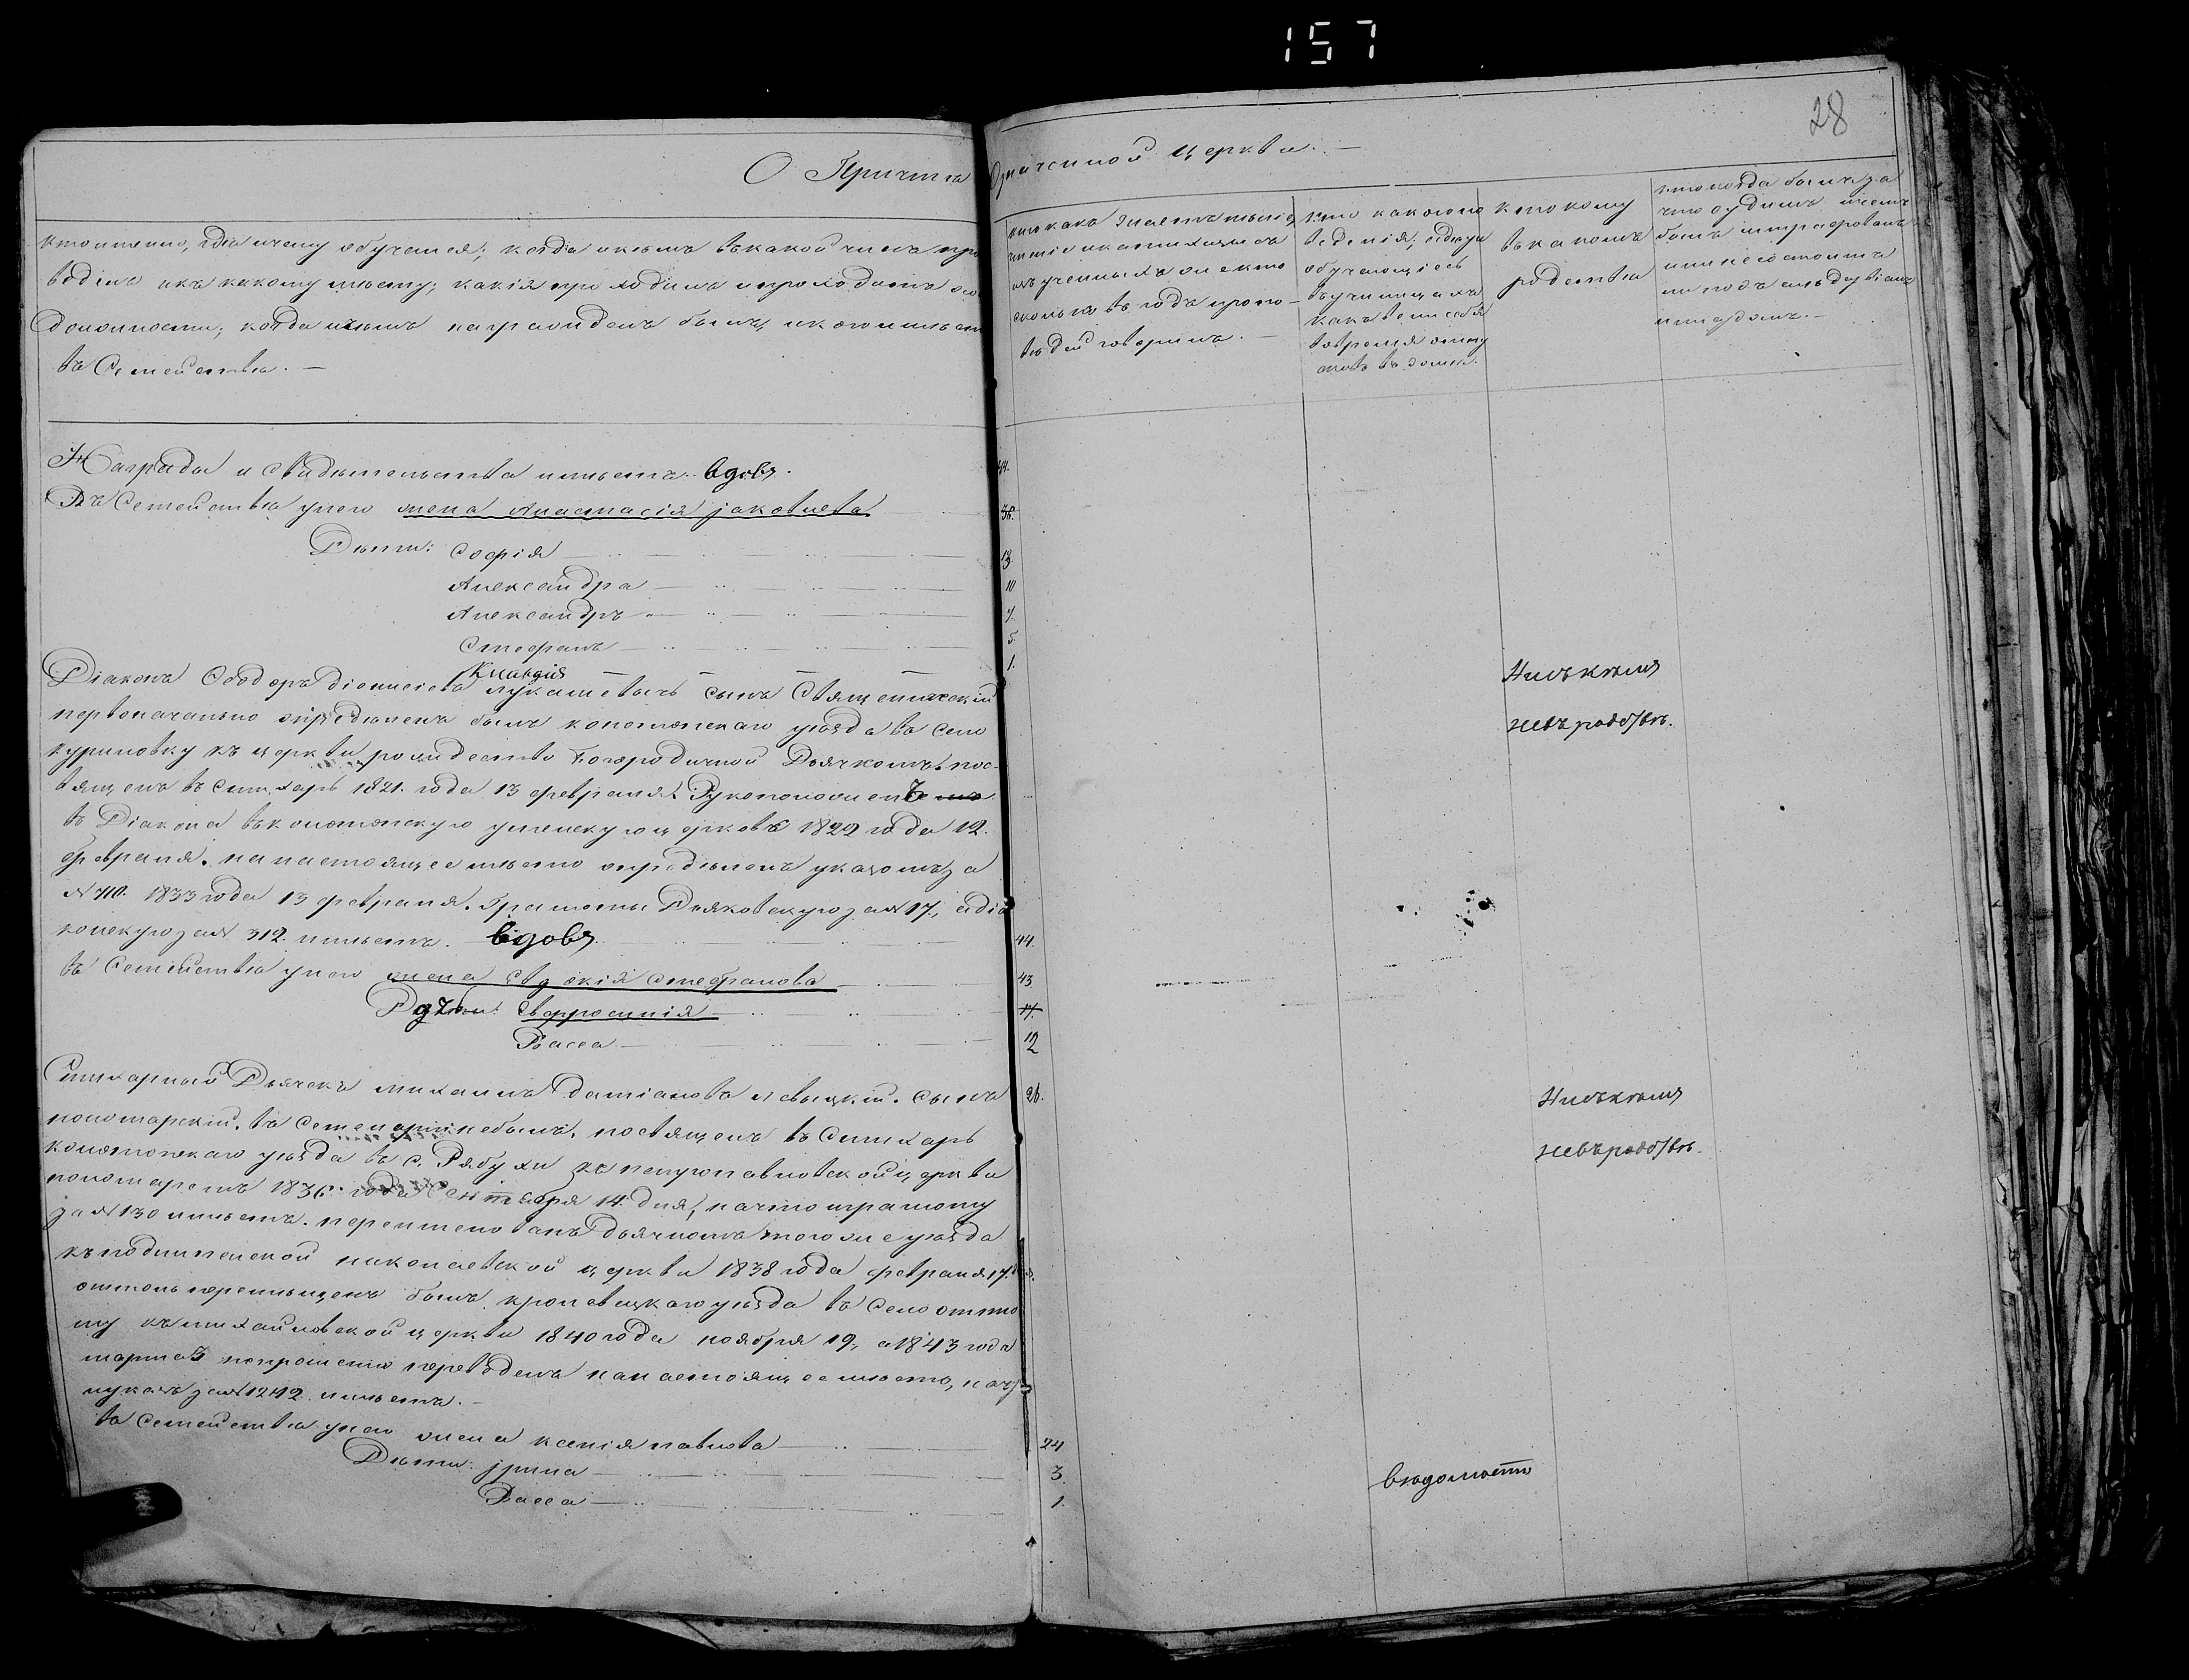 157
28
О Причтѣ Означенной церкви. —
кто именно, гдѣ и чему обучался; когда и кѣмъ въ какой чинъ про
веденъ и къ какому мѣсту; какія проходилъ и проходитъ
должности; когда и чѣмъ награжденъ былъ, и кого имѣетъ
въ Семействѣ. —
кто какъ знаетъ
чтеніе и катихизисъ
изъ ученныхъ и кто
сколько въ годъ пропо-
вѣдей говорилъ. —
кто какого по
веденія, а дѣти
обучающіесь
въ училищахъ
какъ вели себя
во время отпу
сковъ въ домы.
кто кому
въ какомъ
родствѣ
кто когда былъ за
что судимъ и чемъ
былъ штрафованъ
и ныне не состоитъ
ли подъ слѣдствіемъ
и судомъ. —
Награды и свидѣтельства имѣетъ. вдовъ. 44.
Въ Семействѣ у него жена Анастасія яковлева 36.
Дѣти: Софія 13.
Александра 10
Александръ 7.
Стефанъ 5.
Клавдія 1.
Діаконъ Ѳеодоръ Діонисіевъ лукашевичъ сынъ Священическій
первоначально опредѣленъ былъ конотопскаго уѣзда въ село
куриловку къ церкви рождество Богородичной Дьячкомъ, пос-
вященъ въ стихарь 1821. года 13 февраля. Рукоположенъ
въ Діакона въ конотопскую успенскую церковь 1822 года 12.
февраля. на настоящее мѣсто опредѣленъ указомъ за
№ 710. 1833 года 13 февраля. Грамоты Дьяковскую за № 17., а діа
конскую за № 312. имѣетъ. вдовъ. 44.
Нислѣкѣмъ
невъродствѣ.
въ Семействѣ у него жена Евдокія Стефанова 43.
Дѣти: Евфросинія 17.
Васса 12
Стихарный Дьячекъ михаилъ Даміановъ левицкій. сынъ 26.
пономарскій. въ Семенаріи небылъ. посвященъ въ Стихарь
конотопскаго уѣзда въ с. Рябухи къ петропавловской церкви
пономаремъ 1836. года Сентября 14. дня, на что грамоту
за № 130 имѣетъ. переименованъ Дьячкомъ того же уѣзда
къ подлипенской николаевской церкви 1838 года февраля 17.
оттоль перемѣщенъ былъ кролевецкаго уѣзда въ село
къ михайловской церкви 1840 года ноября 19., а 1843 года
марта 3 попрошенію переведенъ на настоящее мѣсто, на что
и указъ за № 1242. имѣетъ. —
Нислѣкѣмъ
невъродствѣ.
въ Семействѣ у него жена ксенія павлова 24
Дѣти: Ирина 3.
Васса 1.
вѣдомость